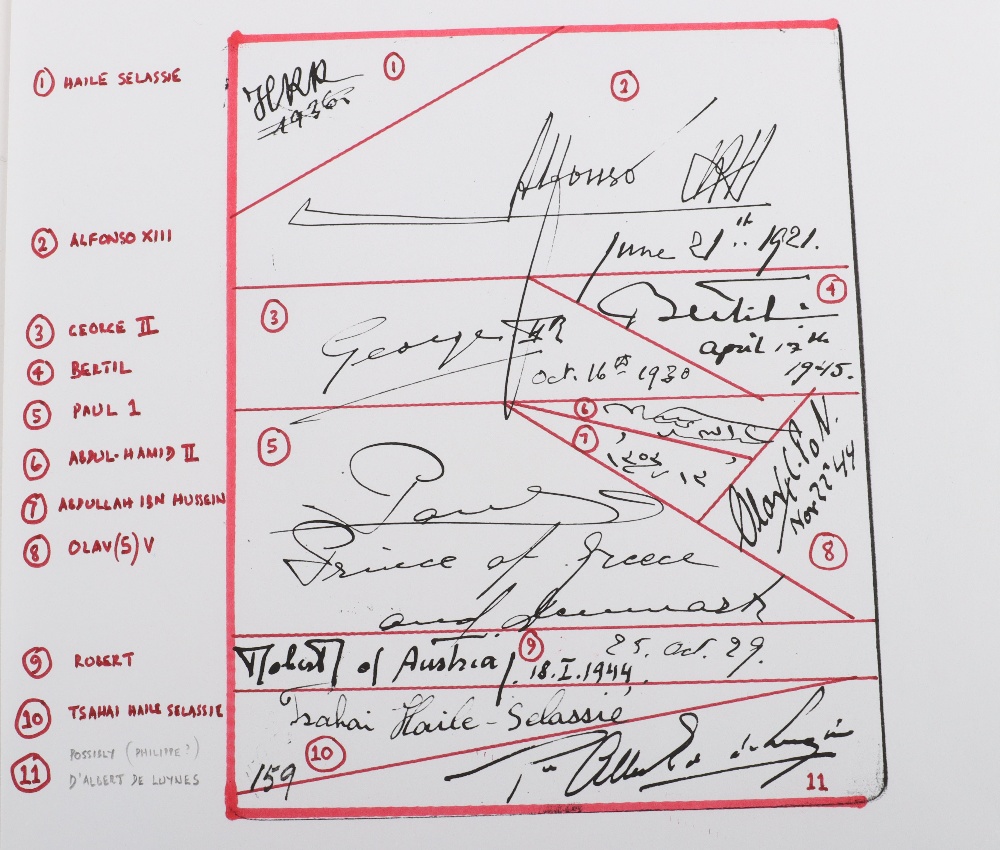 ① HAILE SELASSIE
② ALFONSO XIII
③ GEORGE II
④ BERTIL
⑤ PAUL 1
⑥ ABDUL-HAMID II
⑦ ABDULLAH IBN HUSSEIN
⑧ OLAV(S) V
⑨ ROBERT
⑩ TSAHAI HAILE SELASSIE
⑪ POSSIBLY (PHILIPPE?)
D'ALBERT DE LUYNES
①
1936
②
Alfonso
June 21th 1921.
③
George II R
Oct. 16th 1930
④
Bertil
april 17th
1945.
⑥
⑦
⑤
Paul
Prince of Greece
and Denmark
Olav C.P. o N.
Nov 22 44
⑧
⑨
25. Oct. 29.
Robert of Austria 18.I.1944.
Tsahai Haile-Selassie
⑩
159
11